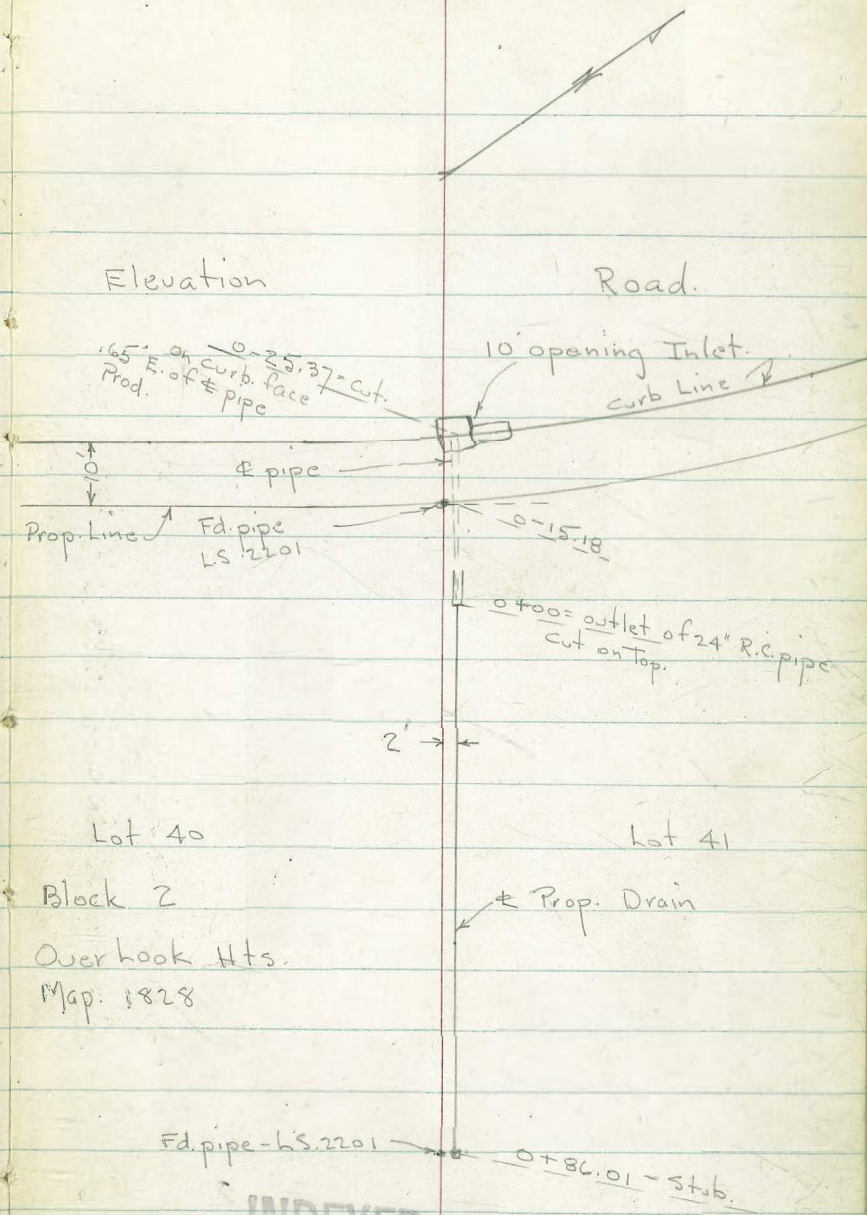 Elevation Road.
.65' E. on 0-25.37 = cut.
curb. face
Prod. of ℄ pipe
10' opening Inlet.
Curb Line
10'
℄ pipe
Prop. Line
Fd. pipe
L.S. 2201
0-15.18
0+00= outlet of 24" R.C. pipe
Cut on Top.
2'
Lot 40
Lot 41
Block 2
℄ Prop. Drain
Overlook Hts.
Map. 1828
Fd. pipe - L.S. 2201
0+86.01 - Stub.
INDEXED